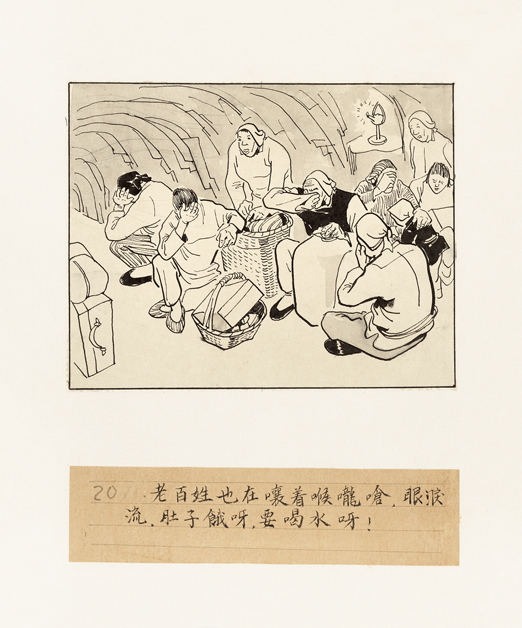 20 老百姓也在嚷着喉嚨嗆.眼淚
流.肚子餓呀.要喝水呀!